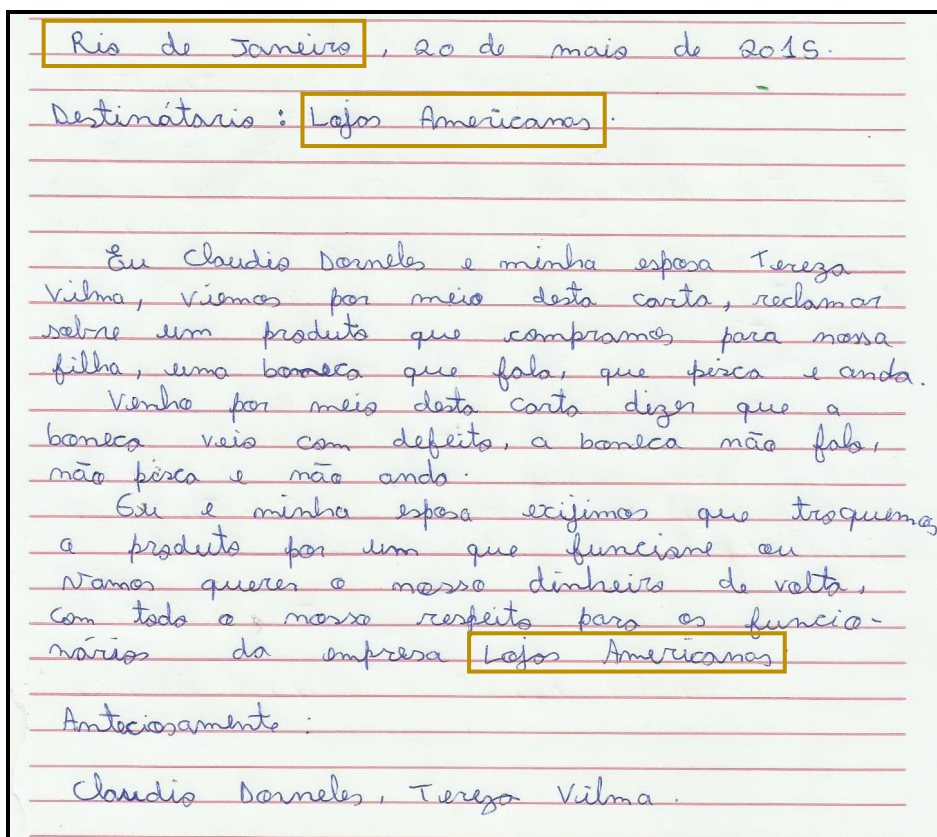 Rio de Janeiro, 20 de maio de 2015.
Destinátario: Lojas Americanas.
Eu Claudio Dorneles e minha esposa Tereza
Vilma, viemos por meio desta carta, reclamar
sobre um produto que compramos para nossa
filha, uma boneca que fala, que pisca e anda.
Venho por meio desta carta dizer que a
boneca veio com defeito, a boneca não fala,
não pisca e não anda.
Eu e minha esposa exijimos que troquemos
o produto por um que funcione ou
Vamos querer o nosso dinheiro de volta,
com todo o nosso respeito para os funcio-
nários da empresa Lojas Americanas
Anteciosamente:
Claudio Dorneles, Tereza Vilma.